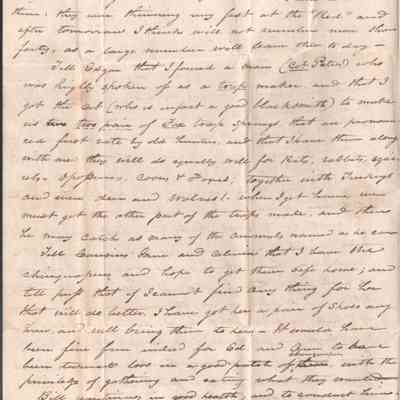 them. they were thinning very fast at the "Red" and
after tomorrow I think will not number more than
forty, as a large number will leave then to day —
Tell Edgar that I found a man (Col Peter) who
was highly spoken of as a trap maker and that I
got the Col (who is in fact a good blacksmith) to make
us two pair of Fox trap springs that are pronoun-
ced first rate by old hunters, and that I have them along
with me they will do equally well for Rats, rabbits, squir-
rels Opossums, Coons & Foxes, together with Turkeys
and even deer and Wolves!. when I get home we
must get the other part of the traps made, and then
he may catch as many of the animals named as he can
Tell Cousins Jane and that I have the
chinquapins and hope to get them safe home; and
tell that if I can't find any thing for her
that will do better. I have got her a pair of Shoes any
how, and will bring them to her — It would have
been fine fun indeed for Ed. and to have
been turned loose in a good patch of chinquapins, with the
privilege of gathering and eating what they wanted —
Bill continues in good health, and to conduct him-